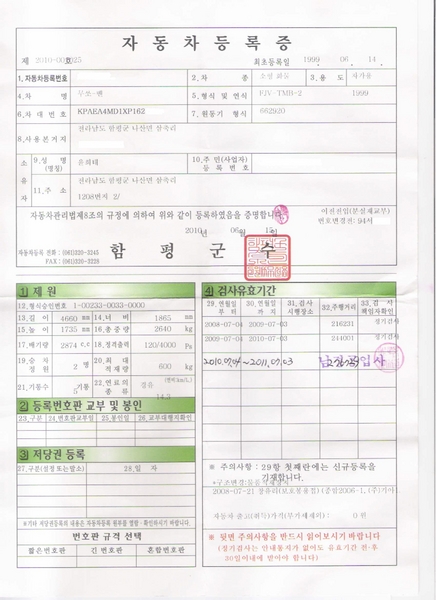 자 동 차 등 록 증
제 2010-00 25
최초등록일 1999 . 06 . 14 .
1.자동차등록번호
2.차 종 소형 화물
3.용 도 자가용
4.차 명 무쏘-밴
5.형식 및 연식 FJV-TMB-2 1999
6.차 대 번 호 KPAEA4MD1XP162
7.원동기 형식 662920
8.사용본거지 전라남도 함평군 나산면 삼축리
소유자
9.성 명(명칭) 윤희태
10.주민(사업자)등 록 번 호
11.주 소 전라남도 함평군 나산면 삼축리
1208번지 2/
자동차관리법제8조의 규정에 의하여 위와 같이 등록하였음을 증명합니다.
번호변경전:94서
2010년 06월 15일
자동차등록 전화 : (061)320-3245
FAX : (061)320-3228
함 평 군 수
1 제 원
12.형식승인번호 1-00233-0033-0000
13.길 이 4660 mm 14.너 비 1865 mm
15.높 이 1735 mm 16.총중량 2640 kg
17.배기량 2874 cc 18.정격출력 120/4000 Ps
19.승 차 정 원 2 명 20.최 대 적재량 600 kg
21.기통수 5 기통 22.연료의 종류 경유 (연비km/L) 14.3
2 등록번호판 교부 및 봉인
23.구분 24.번호판교부일 25.봉인일 26.교부대행자확인
3 저당권 등록
27.구분(설정 또는말소) 28.일 자
※기타 저당권등록의 내용은 자동차등록 원부를 열람·확인하시기 바랍니다.
번호판 규격 선택
짧은번호판 긴 번호판 혼합번호판
4 검사유효기간
29.연월일부 터 30.연월일까 지 31.검 사시행장소 32.주행거리 33.검 사책임자확인
2008-07-04 2009-07-03 216231 정기검사
2009-07-04 2010-07-03 244001 정기검사
2010.07.04 ~ 2011.07.03
※ 주의사항 : 29항 첫째란에는 신규등록을
기재합니다.
자동차 출고(취득)가격(부가세제외) : 0 원
※ 뒷면 주의사항을 반드시 읽어보시기 바랍니다
(정기검사는 안내통지가 없어도 유효기간 전·후
30일이내에 받아야 합니다)